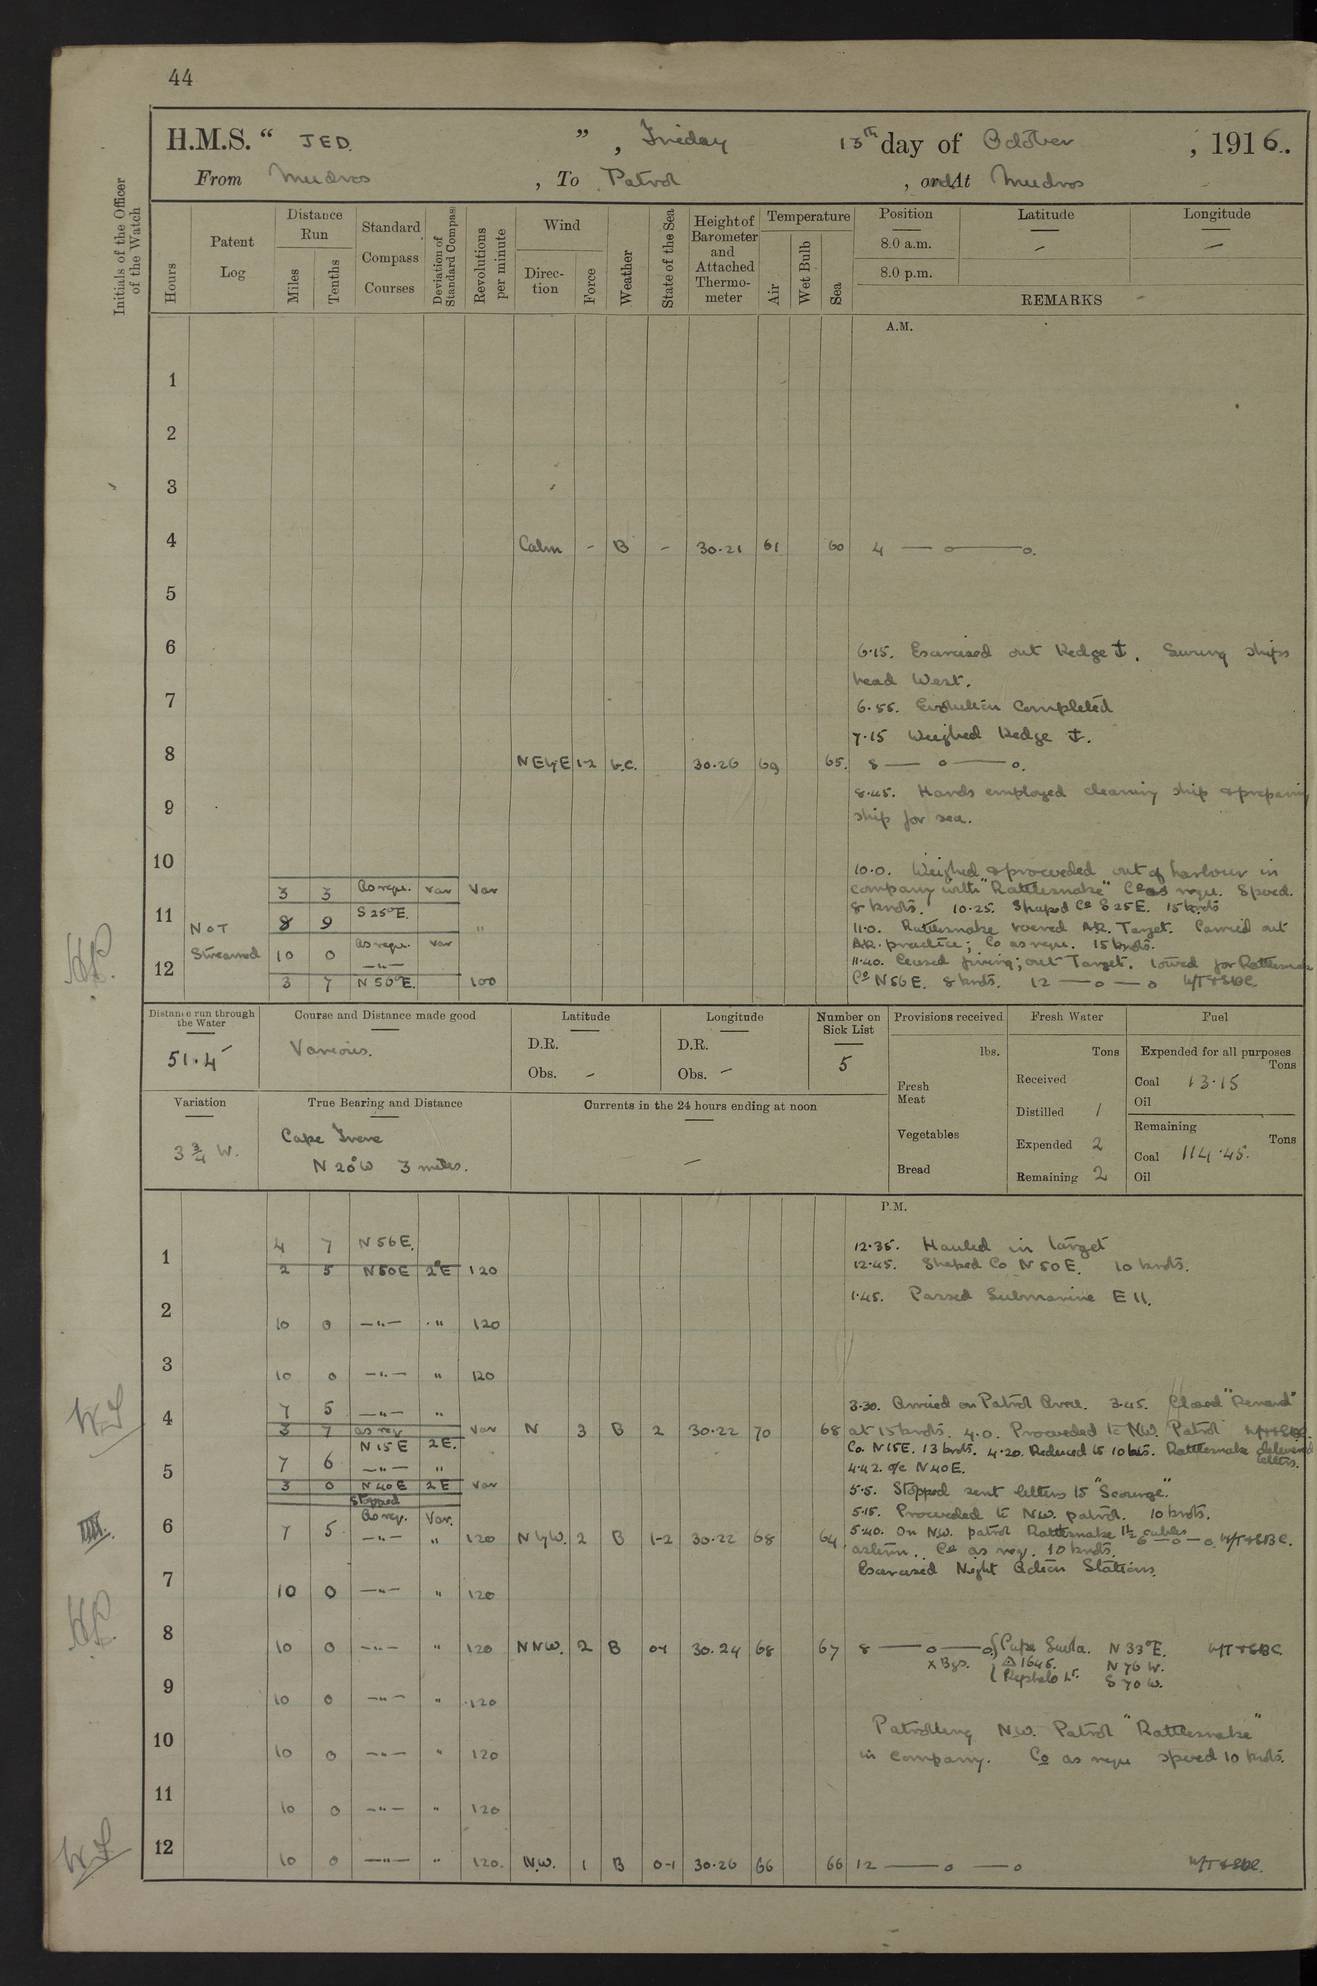 44
H.M.S. “ JED. ”, Friday 13th day of October , 1916.
From Mudros , To Patrol , and At Mudros
Initials of the Officer of the Watch
Hours
Patent Log
Distance Run
Miles
Tenths
Standard Compass Courses
Deviation of Standard Compass
Revolutions per minute
Wind
Direc-tion
Force
Weather
State of the Sea
Height of Barometer and Attached Thermo-meter
Temperature
Air
Wet Bulb
Sea
Position
Latitude
Longitude
8.0 a.m. - -
8.0 p.m.
REMARKS
A.M.
1
2
3
4 Calm - B - 30.21 61 60 4 — o — o.
5
6 6.15. Exercised out Kedge ⚓. Swung ships
head West.
7 6.55. Evolution Completed
7.15 Weighed Kedge ⚓.
8 NEbyE 1-2 b.c. 30.26 69 65. 8 — o — o.
8.45. Hands employed cleaning ship & preparing
9 ship for sea.
10 10.0. Weighed & proceeded out of harbour in
3 3 As requ. Var Var company with "Rattlesnake" Co as requ. Speed.
11 8 9 S 25°E. 8 knots. 10.25. Shaped Co S 25 E. 15 knots
Not Streamed " 11.0. Rattlesnake towed AR. Target. Carried out
10 0 As requ. var AR. practice; Co as requ. 15 knots.
12 —"— 11.40. Ceased firing; out Target. towed for Rattlesnake
3 7 N 56°E. 100 Co N 56 E. 8 knots. 12 — o — o W/T & SBC.
Distance run through the Water
51.4
Course and Distance made good
Various.
Latitude
D.R.
Obs. -
Longitude
D.R.
Obs. -
Number on Sick List
5
Provisions received
lbs.
Fresh Meat
Vegetables
Bread
Fresh Water
Tons
Received
Distilled 1
Expended 2
Remaining 2
Fuel
Expended for all purposes
Tons
Coal 13.15
Oil
Remaining
Tons
Coal 114.45.
Oil
Variation
3 3/4 W.
True Bearing and Distance
Cape Irene
N 20°W 3 miles.
Currents in the 24 hours ending at noon
-
P.M.
4 7 N 56 E. 12.35. Hauled in target
1 2 5 N 50 E 2°E 120 12.45. Shaped Co N 50 E. 10 knots.
1.45. Passed Submarine E 11.
2 10 0 —"— " 120
3 10 0 —"— " 120
7 5 —"— " 3.30. Arrived on Patrol Area. 3.45. Closed "Renard"
4 3 7 as req Var N 3 B 2 30.22 70 68 at 15 knots. 4.0. Proceeded to NW. Patrol W/T & SBC.
N 15 E 2 E. Co. N 15 E. 13 knots. 4.20. Reduced to 10 kts. Rattlesnake delivered letters.
7 6 —"— " 4.42. a/c N 40 E.
5 3 0 N 40 E 2 E Var 5.5. Stopped sent letters to "Scourge".
Stopped
As req. Var. 5.15. Proceeded to N.W. patrol. 10 knots.
6 7 5 —"— " 120 N by W. 2 B 1-2 30.22 68 64 5.40. On NW. patrol Rattlesnake 1½ cables — o — o. W/T & SBC.
astern. Co as req. 10 knots.
Exercised Night Action Stations.
7 10 0 —"— " 120
8 10 0 —"— " 120 NNW. 2 B 0-1 30.24 68 67 8 — o — o { Cape Suvla. N 33°E. W/T & SBC.
x Bgs. △ 1645. N 76 W.
Kephalo Lt. S 70 W.
9 10 0 —"— " 120
10 Patrolling N.W. Patrol "Rattlesnake"
10 0 —"— " 120 in company. Co as requ speed 10 knots.
11 10 0 —"— " 120
12 10 0 —"— " 120. N.W. 1 B 0-1 30.26 66 66 12 — o — o W/T & SBC.